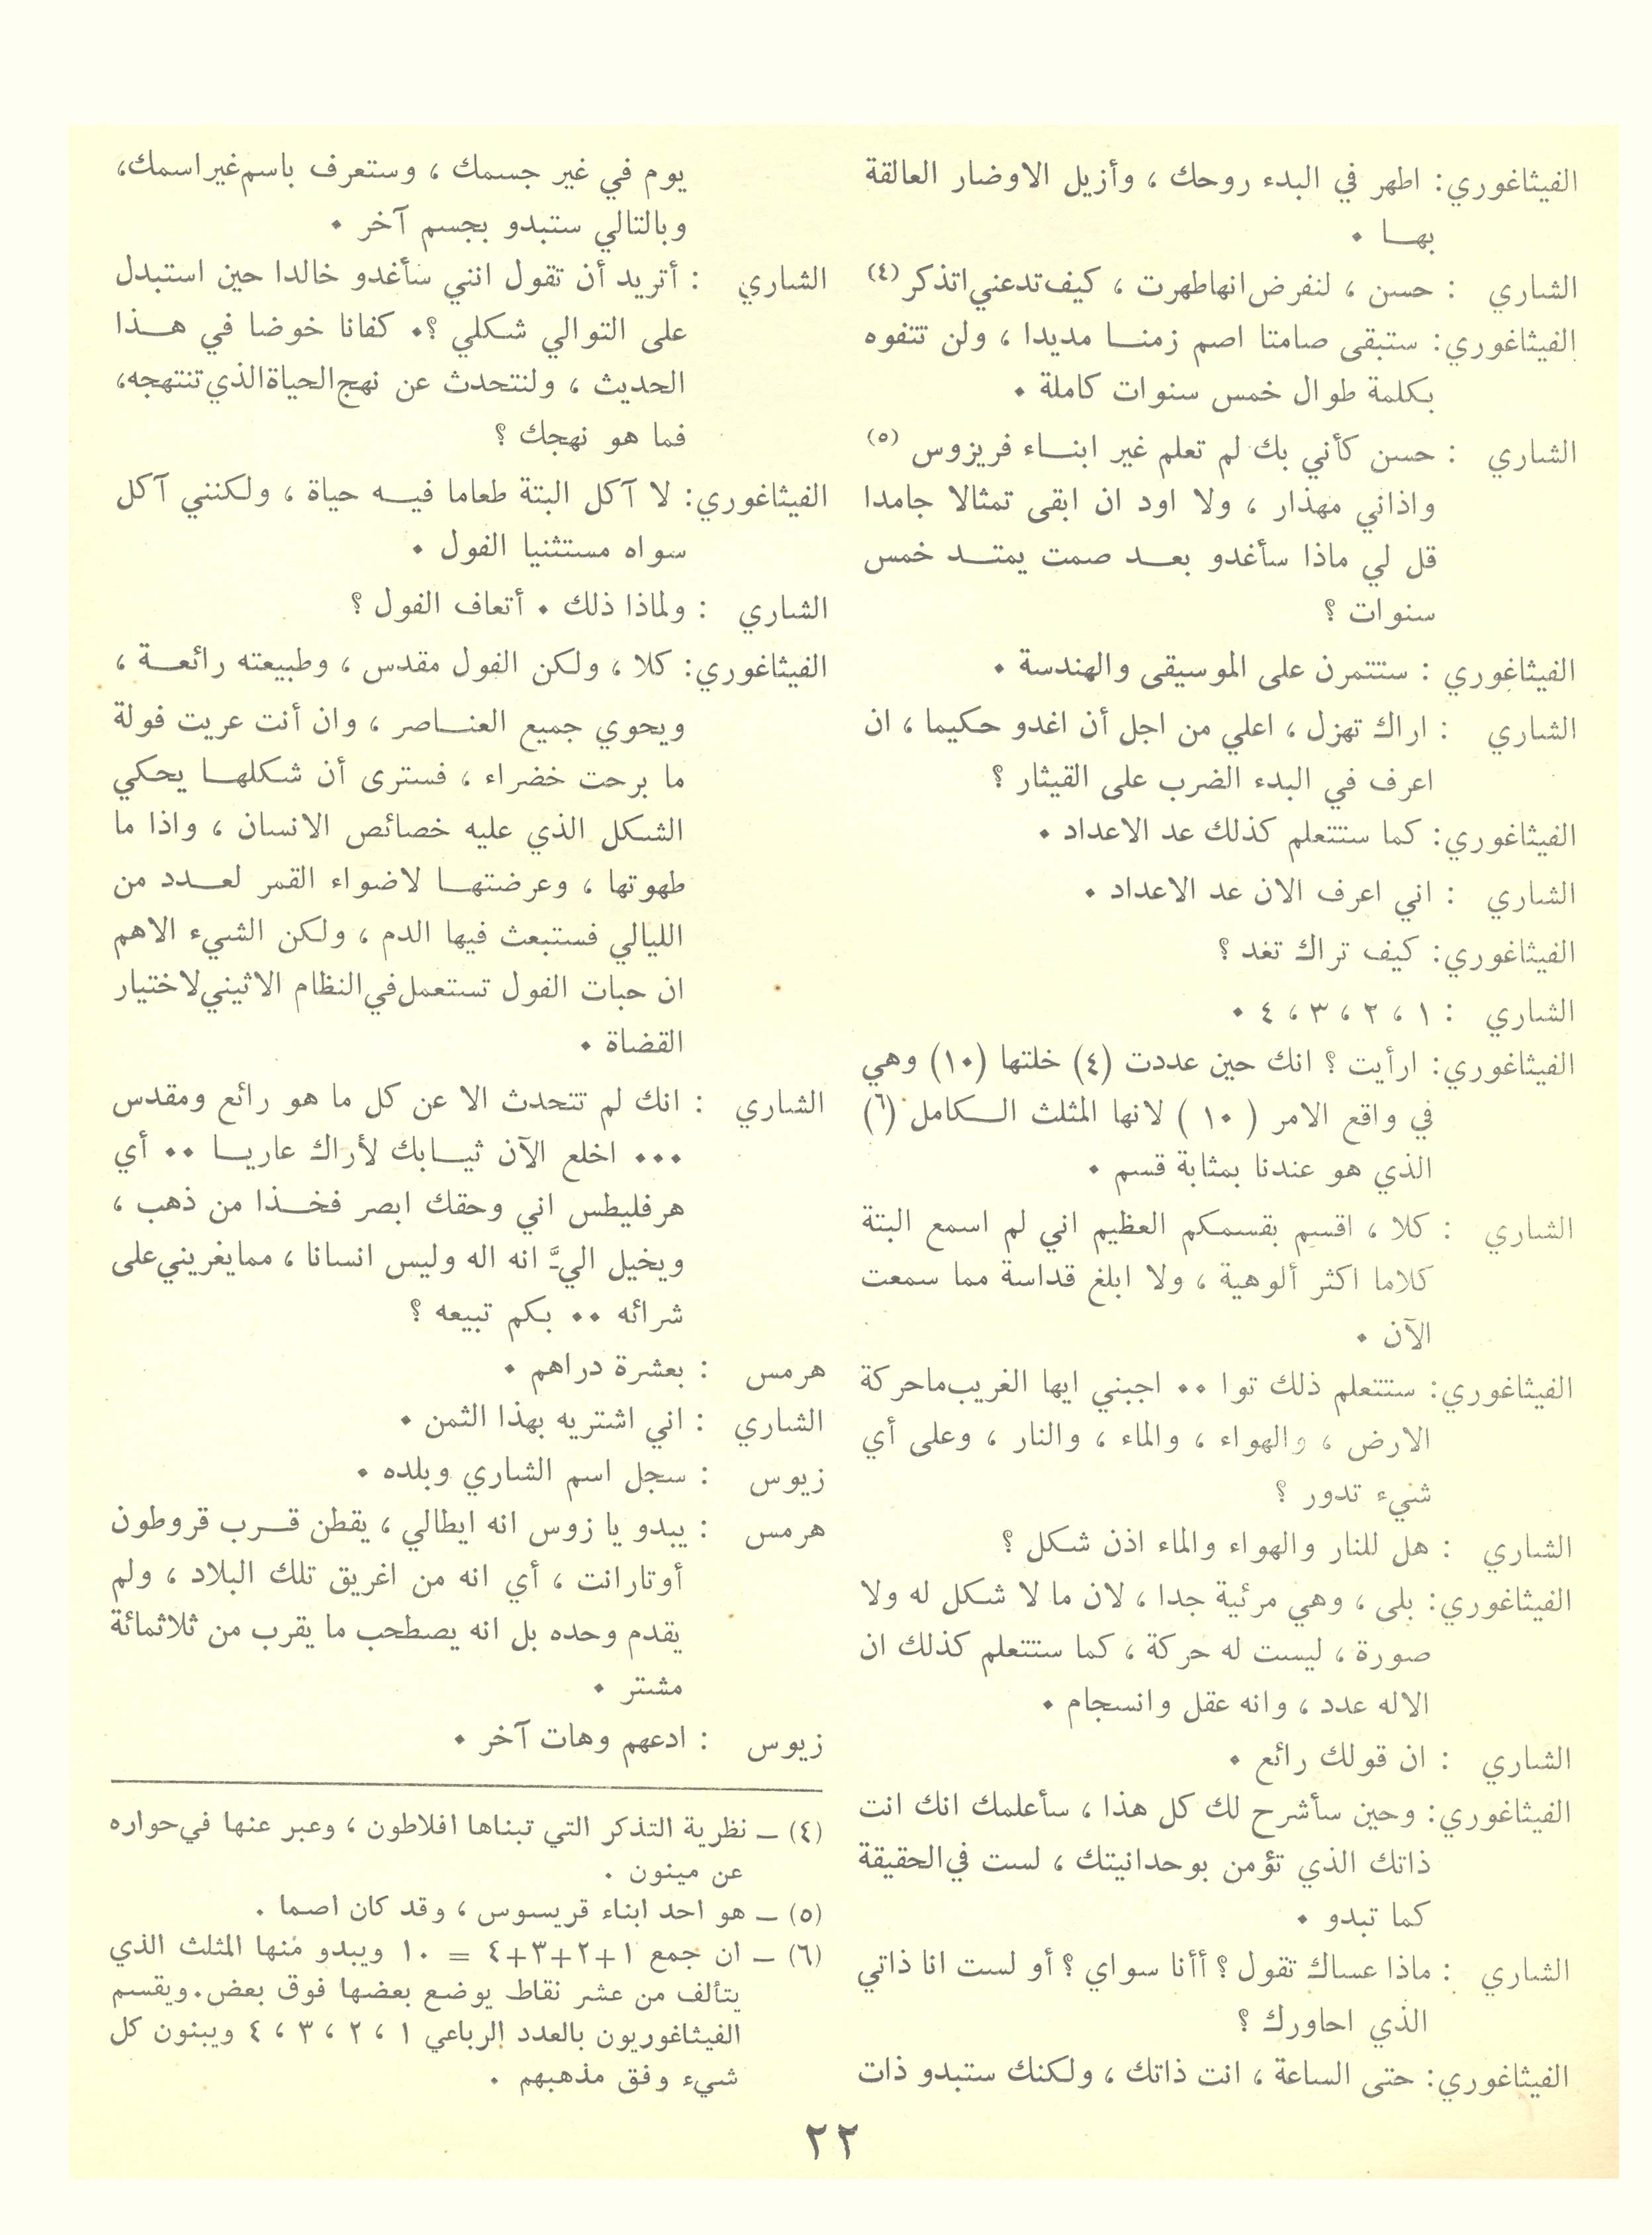 الفيثاغوري: اطهر في البدء روحك ، وأزيل الاوضار العالقة
بهــا ٠
الشاري : حسن ، لنفرض انها طهرت ، كيف تدعني اتذكر (٤)
الفيثاغوري: ستبقى صامتا اصم زمنــا مديدا ، ولن تتفوه
بكلمة طوال خمس سنوات كاملة ٠
الشاري : حسن كأني بك لم تعلم غير ابنــاء فريزوس (٥)
واذاني مهذار ، ولا اود ان ابقى تمثالا جامدا
قل لي ماذا سأغدو بعــد صمت يمتــد خمس
سنوات ؟
الفيثاغوري : ستتمرن على الموسيقى والهندسة ٠
الشاري : اراك تهزل ، اعلي من اجل أن اغدو حكيما ، ان
اعرف في البدء الضرب على القيثار ؟
الفيثاغوري: كما ستتعلم كذلك عد الاعداد ٠
الشاري : اني اعرف الان عد الاعداد ٠
الفيثاغوري: كيف تراك تغد ؟
الشاري : ١ ، ٢ ، ٣ ، ٤ ٠
الفيثاغوري: ارأيت ؟ انك حين عددت (٤) خلتها (١٠) وهي
في واقع الامر ( ١٠ ) لانها المثلث الــكامل (٦)
الذي هو عندنا بمثابة قسم ٠
الشاري : كلا ، اقسم بقسمكم العظيم اني لم اسمع البتة
كلاما اكثر ألوهية ، ولا ابلغ قداسة مما سمعت
الآن ٠
الفيثاغوري: ستتعلم ذلك توا ٠٠ اجبني ايها الغريب ماحركة
الارض ، والهواء ، والماء ، والنار ، وعلى أي
شيء تدور ؟
الشاري : هل للنار والهواء والماء اذن شكل ؟
الفيثاغوري: بلى ، وهي مرئية جدا ، لان ما لا شكل له ولا
صورة ، ليست له حركة ، كما ستتعلم كذلك ان
الاله عدد ، وانه عقل وانسجام ٠
الشاري : ان قولك رائع ٠
الفيثاغوري: وحين سأشرح لك كل هذا ، سأعلمك انك انت
ذاتك الذي تؤمن بوحدانيتك ، لست في الحقيقة
كما تبدو ٠
الشاري : ماذا عساك تقول ؟ أأنا سواي ؟ أو لست انا ذاتي
الذي احاورك ؟
الفيثاغوري: حتى الساعة ، انت ذاتك ، ولكنك ستبدو ذات
يوم في غير جسمك ، وستعرف باسم غير اسمك،
وبالتالي ستبدو بجسم آخر ٠
الشاري : أتريد أن تقول انني سأغدو خالدا حين استبدل
على التوالي شكلي ؟٠ كفانا خوضا في هــذا
الحديث ، ولنتحدث عن نهج الحياة الذي تنتهجه،
فما هو نهجك ؟
الفيثاغوري: لا آكل البتة طعاما فيــه حياة ، ولكنني آكل
سواه مستثنيا الفول ٠
الشاري : ولماذا ذلك ٠ أتعاف الفول ؟
الفيثاغوري: كلا ، ولكن الفول مقدس ، وطبيعته رائعــة ،
ويحوي جميع العنــاصر ، وان أنت عريت فولة
ما برحت خضراء ، فسترى أن شكلهــا يحكي
الشكل الذي عليه خصائص الانسان ، واذا ما
طهوتها ، وعرضتهــا لاضواء القمر لعــدد من
الليالي فستبعث فيها الدم ، ولكن الشيء الاهم
ان حبات الفول تستعمل في النظام الاثيني لاختيار
القضاة ٠
الشاري : انك لم تتحدث الا عن كل ما هو رائع ومقدس
٠٠٠ اخلع الآن ثيــابك لأراك عاريــا ٠٠ أي
هرفليطس اني وحقك ابصر فخــذا من ذهب ،
ويخيل اليَّ انه اله وليس انسانا ، مما يغريني على
شرائه ٠٠ بكم تبيعه ؟
هرمس : بعشرة دراهم ٠
الشاري : اني اشتريه بهذا الثمن ٠
زيوس : سجل اسم الشاري وبلده ٠
هرمس : يبدو يا زوس انه ايطالي ، يقطن قــرب قروطون
أوتارانت ، أي انه من اغريق تلك البلاد ، ولم
يقدم وحده بل انه يصطحب ما يقرب من ثلاثمائة
مشتر ٠
زيوس : ادعهم وهات آخر ٠
(٤) ــ نظرية التذكر التي تبناها افلاطون ، وعبر عنها في حواره
عن مينون .
(٥) ــ هو احد ابناء قريسوس ، وقد كان اصما .
(٦) ــ ان جمع ١+٢+٣+٤ = ١٠ ويبدو منها المثلث الذي
يتألف من عشر نقاط يوضع بعضها فوق بعض. ويقسم
الفيثاغوريون بالعدد الرباعي ١ ، ٢ ، ٣ ، ٤ ويبنون كل
شيء وفق مذهبهم .
٢٢